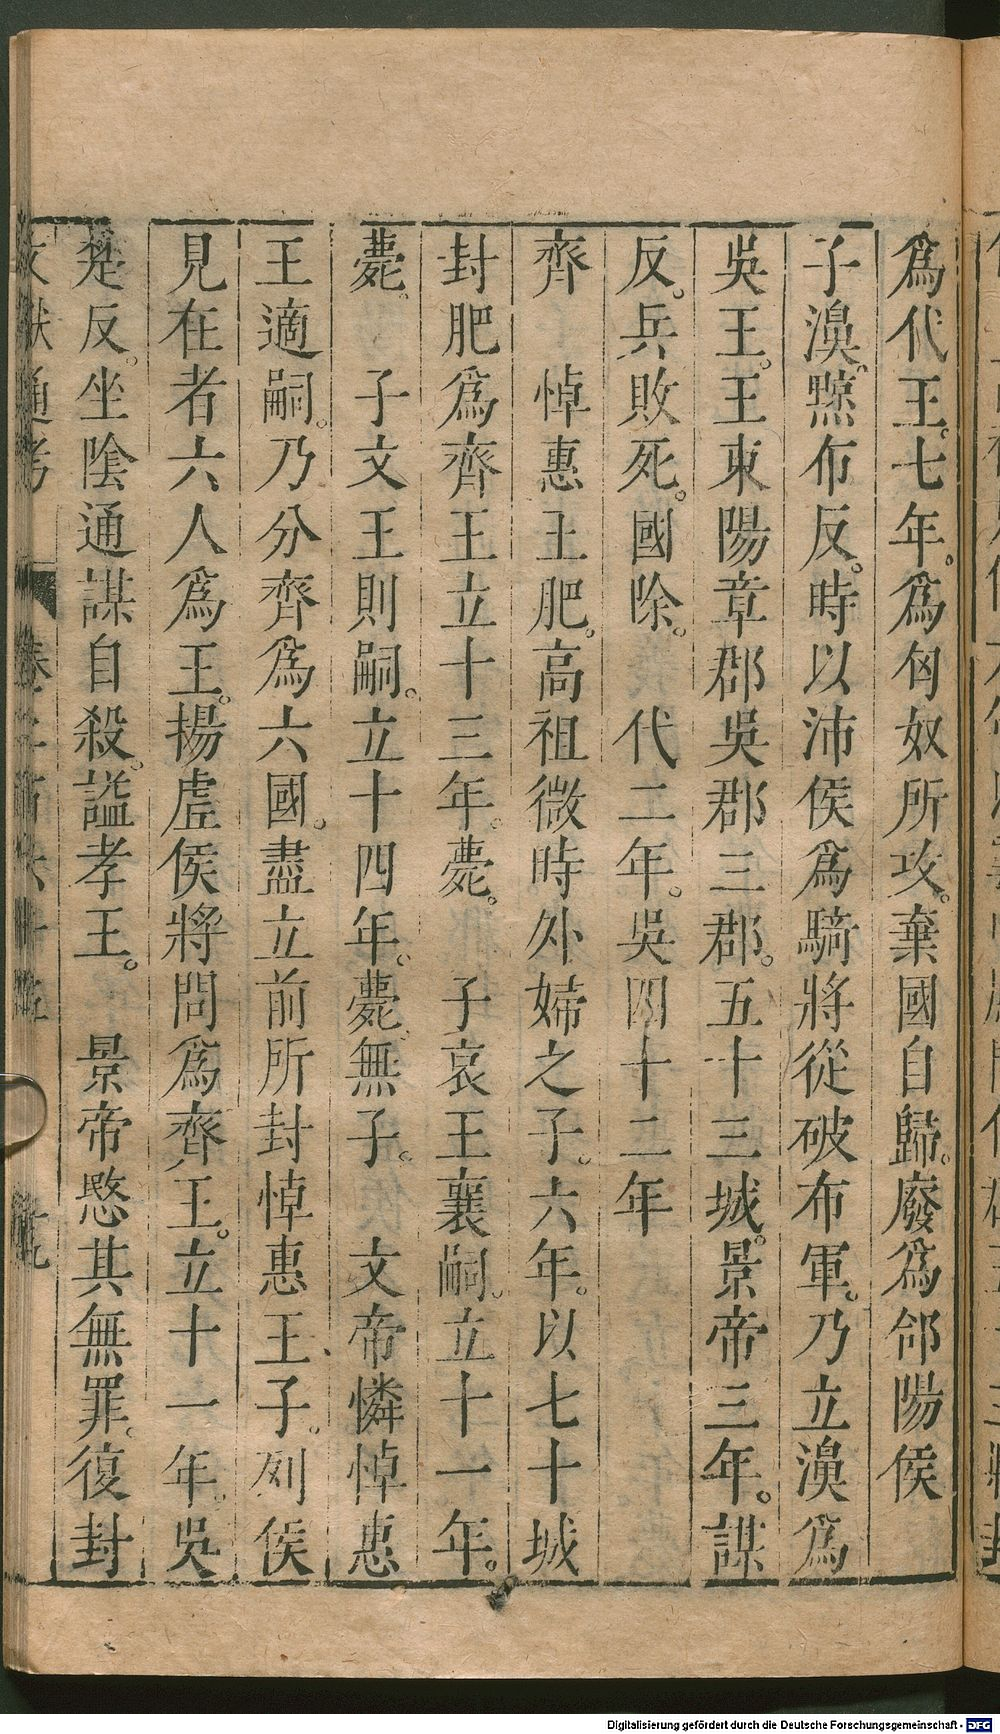 爲代王。七年。爲匈奴所攻。棄國自歸。廢爲郃陽侯
子濞。黥布反。時以沛侯爲騎將從破布軍。乃立濞爲
吳王。王東陽章郡吳郡三郡。五十三城。景帝三年。謀
反。兵敗死。國除。 代二年。吳四十二年
齊 悼惠王肥。高祖微時外婦之子。六年。以七十城
封肥爲齊王立十三年。薨。 子哀王襄嗣。立十一年。
薨。 子文王則嗣。立十四年。薨。無子。 文帝憐悼惠
王適嗣。乃分齊爲六國。盡立前所封悼惠王子。列侯
見在者六人爲王。揚虛侯將閭爲齊王。立十一年。吳
楚反。坐陰通謀自殺。謚孝王。 景帝愍其無罪。復封
文獻通考 卷二百六十 九
Digitalisierung gefördert durch die Deutsche Forschungsgemeinschaft - DFG